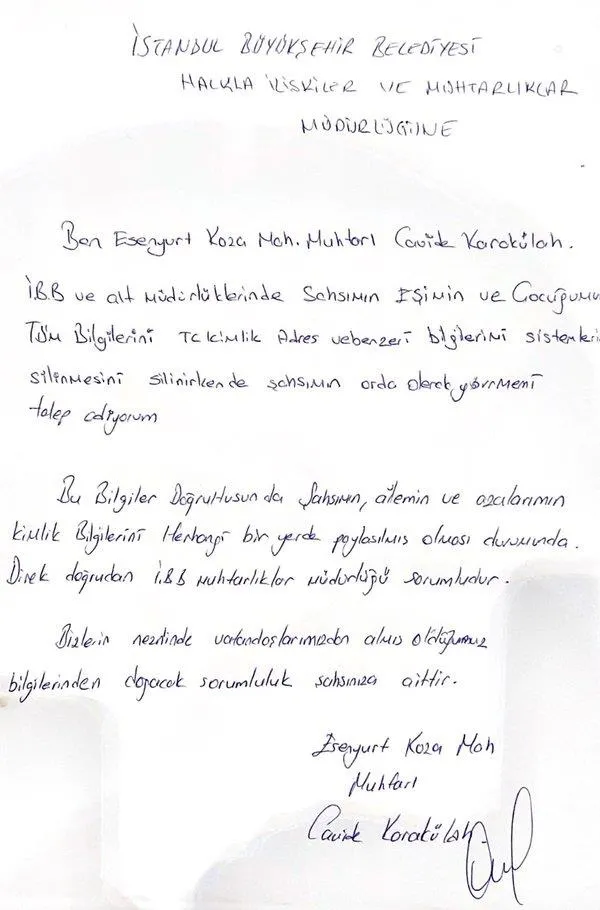 İSTANBUL BÜYÜKŞEHİR BELEDİYESİ
HALKLA İLİSKİLER VE MUHTARLIKLAR
MÜDÜRLÜĞÜNE
Ben Esenyurt Koza Mah. Muhtarı Cavide Karakülah.
İ.B.B ve alt Müdürlüklerinde Sahsımın Eşimin ve Çocuğumun
Tüm Bilgilerini TC kimlik Adres vebenzeri bilgilerimi sistemleri
silinmesini silinirkende şahsımın orda olarak görmemi
talep ediyorum
Bu Bilgiler Doğrultusunda Şahsımın, ailemin ve azalarımın
kimlik Bilgilerini Herhangi bir yerde paylasılmıs olması durumunda.
Direk doğrudan İ.B.B Muhtarlıklar Müdürlüğü sorumludur.
Bizlerin nezdinde vatandaşlarımızdan almıs olduğumuz
bilgilerinden doğacak sorumluluk şahsınıza aittir.
Esenyurt Koza Mah
Muhtarı
Cavide Karakülah